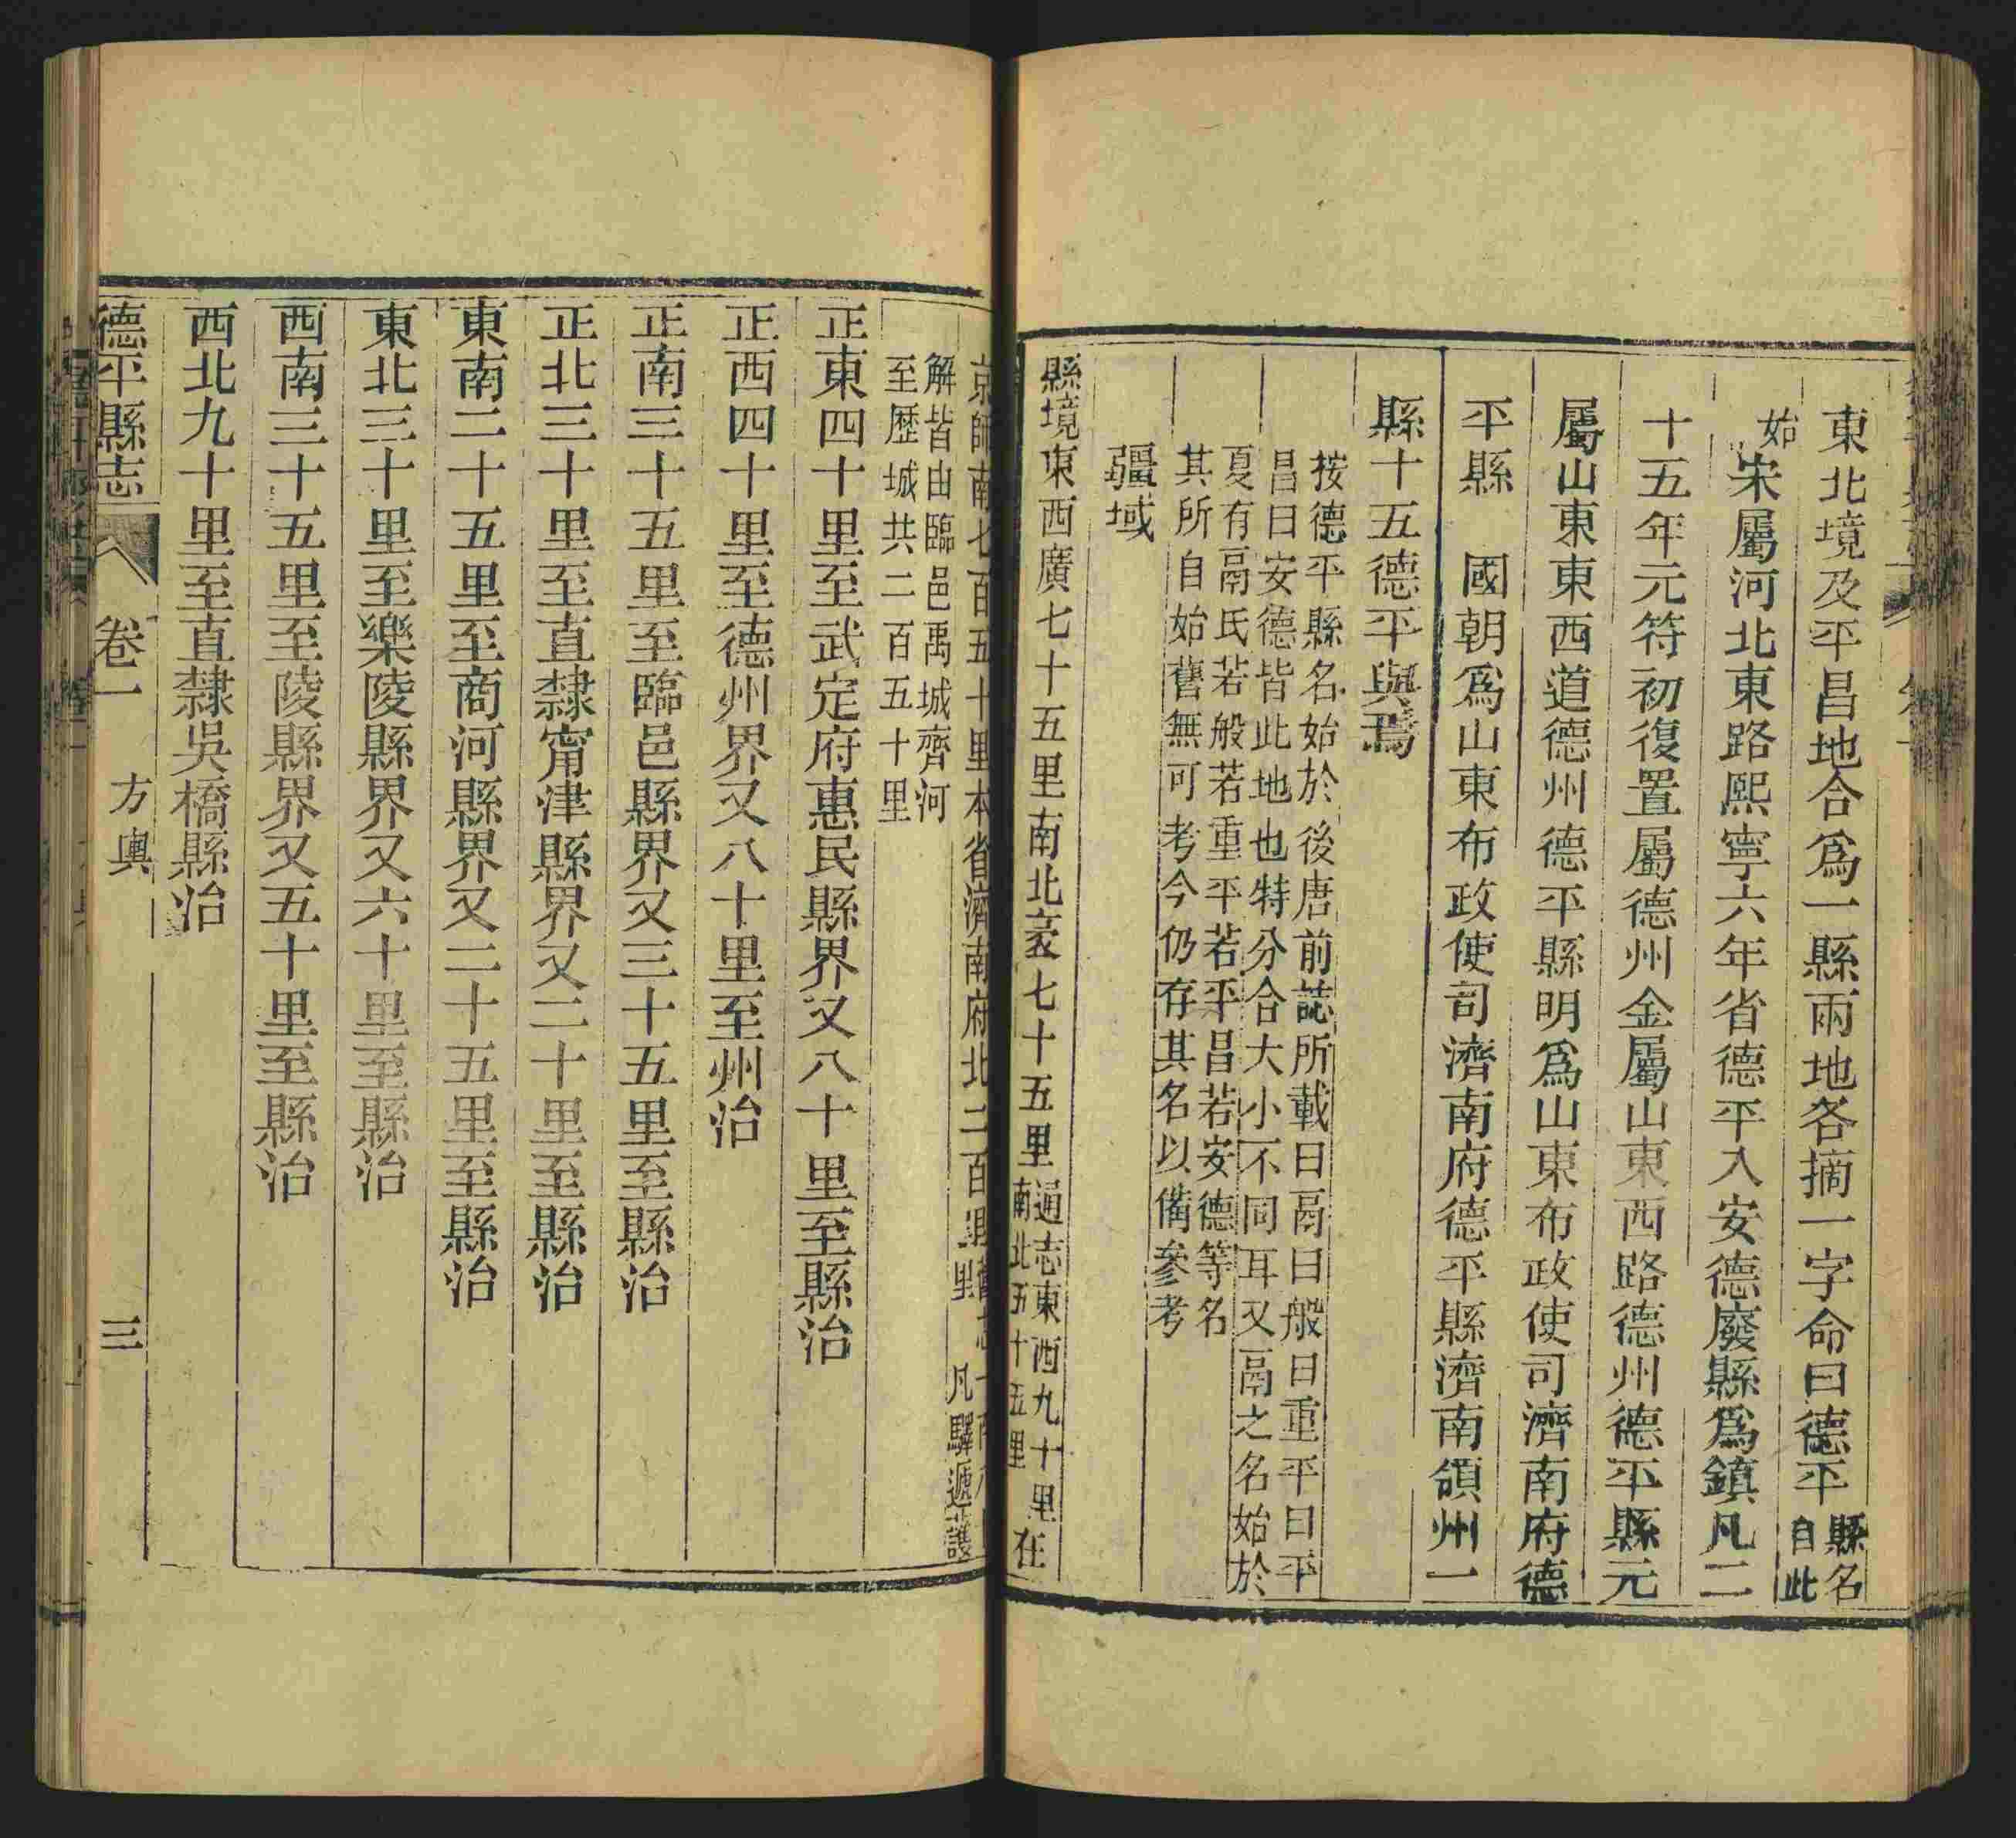 東北境及平昌地合爲一縣兩地各摘一字命曰德平縣名自此
始宋屬河北東路熙寧六年省德平入安德廢縣爲鎮凡二
十五年元符初復置屬德州金屬山東西路德州德平縣元
屬山東東西道德州德平縣明爲山東布政使司濟南府德
平縣　國朝爲山東布政使司濟南府德平縣濟南領州一
縣十五德平與焉
按德平縣名始於後唐前誌所載曰鬲曰般曰重平曰平
昌曰安德皆此地也特分合大小不同耳又鬲之名始於
夏有鬲氏若般若重平若平昌若安德等名
其所自始舊無可考今仍存其名以備參考
疆域
縣境東西廣七十五里南北袤七十五里通志東西九十里南北五十五里在
京師南七百五十里本省濟南府北二百里
凡驛遞護
解皆由臨邑禹城齊河
至歷城共二百五十里
正東四十里至武定府惠民縣界又八十里至縣治
正西四十里至德州界又八十里至州治
正南三十五里至臨邑縣界又三十五里至縣治
正北三十里至直隸甯津縣界又二十里至縣治
東南二十五里至商河縣界又二十五里至縣治
東北三十里至樂陵縣界又六十里至縣治
西南三十五里至陵縣界又五十里至縣治
西北九十里至直隸吳橋縣治
德平縣志　卷一　方輿　三